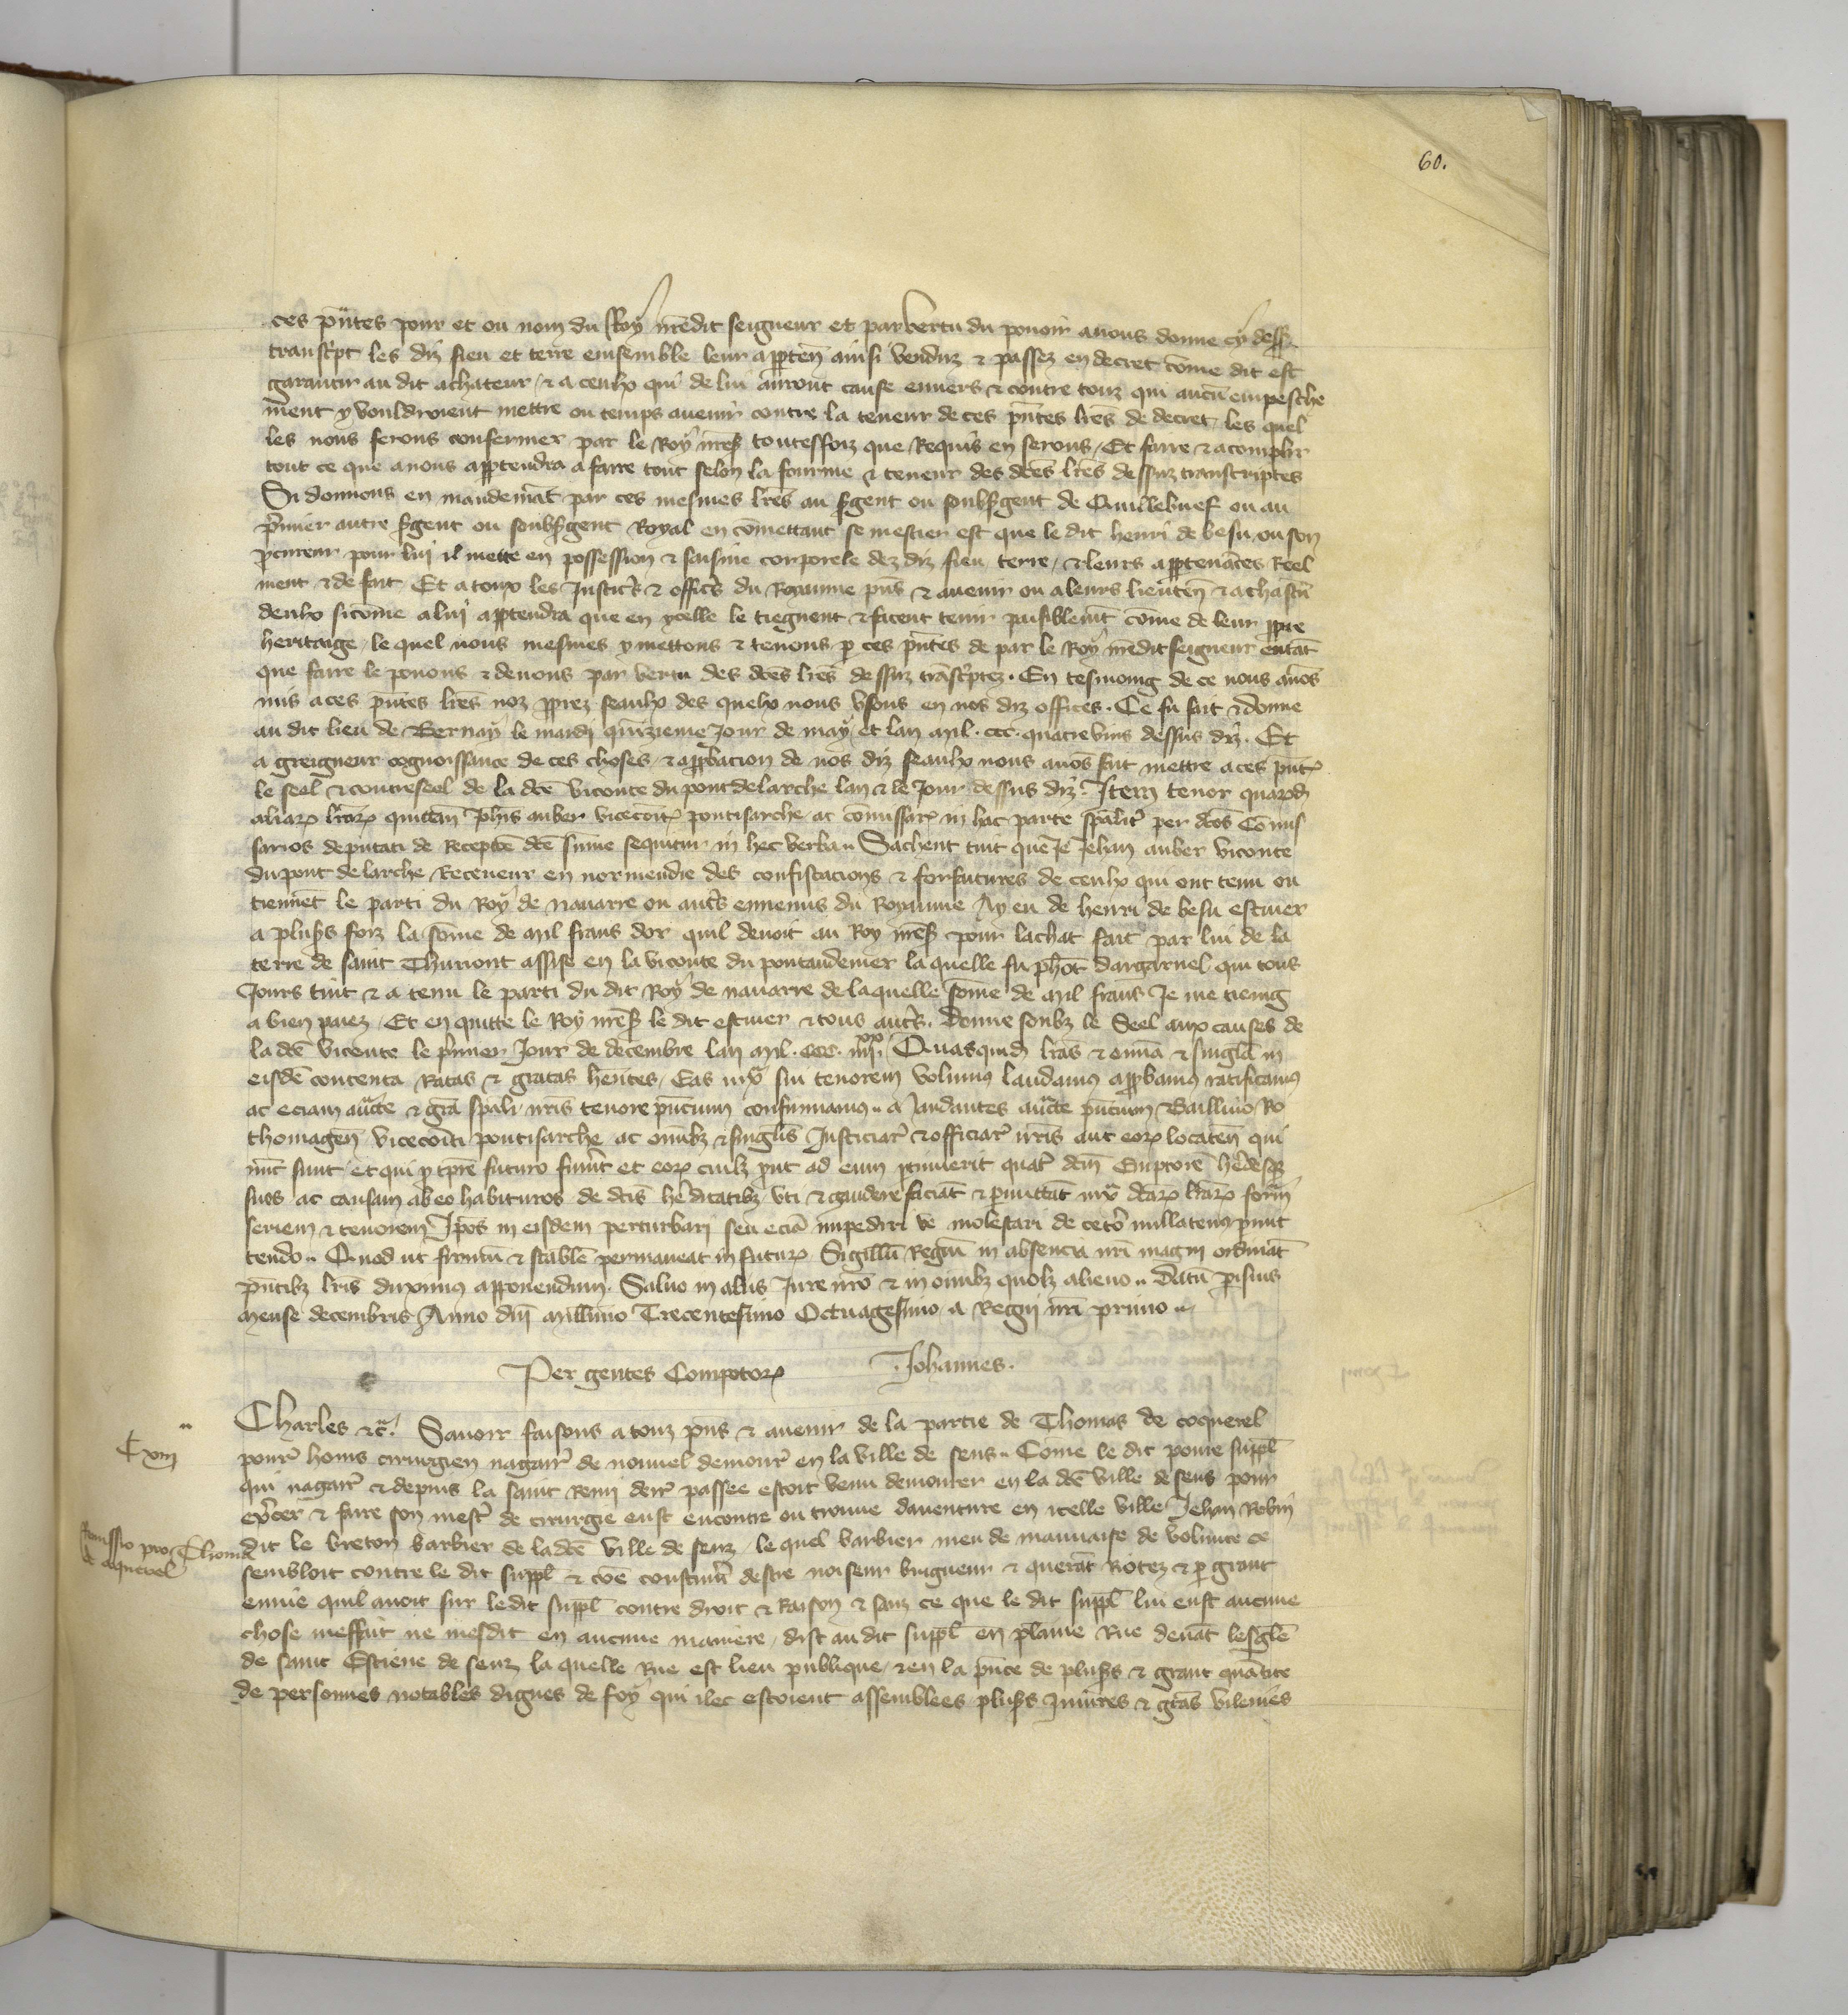 60.
ces p̃ntes pour et ou nom du Roy nr̃edit seigneur et par vertu du pouoir a nous donne cy dess̃
transc̾pt les diz fieu et terre ensemble leur app̾teñ ainsi venduz & passez en decret cõme dit est
garantir au dit achateur / & a ceulx qui de lui auront cause enuers & contre touz qui aucũ empesche
ment y vouldroient mettre ou temps auenir contre la teneur de ces p̃ntes lr̃es de decret / les quel
les nous ferons confermer par le Roy nr̃es̃ toutesfoiz que Requis en serons / Et faire & acomplir
tout ce que a nous app̾tendra a faire tout selon la fourme & teneur des dc̃es lr̃es dessuz transcriptes
Si donnons en mandem̃ẽt par ces mesmes lr̃es au s̾gent ou soubs̾gent de Quillebuef ou au
p̾mier autre s̾gent ou soubs̾gent Royal en cõmettant se mestier est que le dit henri de besu / ou son
p̾cureur pour lui il mette en possession & saisine corporele dez diz fieu terre / & leurs app̾tenãces Reel
ment & de fait Et a touz les Justic̾s & offic̾s du Royaume p̃ns & auenir ou a leurs lieuteñ & a chascũ
deulx sicõme a lui app̾tendra que en ycelle le tiegnent & facent tenir paisiblem̃t cõme de leur pp̾re
heritaige / le quel nous mesmes y mettons & tenons p̱ ces p̃ntes de par le Roy nr̃edit seigneur entãt
que faire le pouons & deuons par vertu des dc̃es lr̃es dessuz trãsc̾ptez . En tesmoing de ce nous auõs
mis a ces p̃ntes lr̃es noz pp̾rez seaulx des quelx nous vsons en nos diz offices . Ce fu fait & donne
au dit lieu de Bernay le mardi quĩzieme Jour de may / et lan mil . ccc . quatrevins dessus diz̾ . Et
a greigneur cognoissance de ces choses / & app̾bacion de nos diz seaulx nous auõs fait mettre a ces p̃nt̾
le seel & contreseel de la dc̃e viconte du pont de larche lan & le Jour dessus diz̾ . Item tenor quarũd̃
aliaꝝ lr̃aꝝ quittañ Joh̃is auber vicecom̃t̾ pontisarche ac cõmissar̾ in hac parte sp̃alit̾ per dc̃os Cõmis
sarios deputati de Receptẽ dc̃e sum̃e sequitur in hec verba .. Sachent tuit que Je Jehan auber viconte
du pont de larche Receueur en normendie des confiscacions & forfaitures de ceulx qui ont tenu ou
tiennẽt le parti du Roy de nauarre ou aut̾s ennemis du Royaume Ay eu de henri de besu escuier
a plus̾s foiz la sõme de mil frans dor quil deuoit au Roy nr̃es̃ pour lachat fait par lui de la
terre de saint Thuriont assise en la viconte du pontaudemer la quelle fu ph̃ot dargarnel qui tous
Jours tint & a tenu le parti du dit Roy de nauarre de laquelle sõme de mil frans Je me tieng
a bien paiez / Et en quitte le Roy nr̃es̃ le dit escuier & tous aut̾s . Donne soubz le Seel aux causes de
la dc̃e viconte le p̾mier Jour de decembre lan mil . ccc . iiij.xx Quasquid̃ lr̃as & omĩa & singl̃a in
eisdẽ contenta Ratas & gratas hẽntes / Eas iux̃ sui tenorem volumꝰ laudamus app̾bamꝰ ratificamꝰ
ac eciam auc̃te & grã sp̃ali nr̃is tenore p̃ncium confirmamꝰ .. Mandantes auc̃te p̃ncium Bailliuo Ro
thomageñ vicecom̃iti pontisarche ac om̃ibꝫ & singl̃is Justiciar̾ & officiar̾ nr̃is aut eoꝝ locateñ qui
nũc sunt et qui p̱ tp̃re futuro fuer̃t et eoꝝ cuilꝫ p̾ut ad eum p̱tinuerit quat̾ dc̃m Emptorẽ he̾desqꝫ
suos ac causam ab eo habituros de dc̃is he̾ditatibꝫ vti & gaudere faciãt & p̱mittãt iux̃ dc̃aꝝ lr̃aꝝ form̃
seriem & tenorem Ip̃os in eisdem perturbari seu eciã impediri ve molestari de cet̾o nullatenꝰ p̱mit
tendo .. Quod ut firmũ & stabilẽ permaneat in futuꝝ Sigillũ Regiũ in absencia nr̃i magni ordinat̃
p̃ntibꝫ lr̃is duximus apponendum . Saluo in aliis Jure nr̃o & in om̃ibꝫ quolꝫ alieno .. Datũ p̱isius
Mense decembris Anno dñi Millĩmo Trecentesimo Octuagesimo a Regni nr̃i primo ..
Per gentes Compotoꝝ Johannes .
Cxiij
Charles &c̃ . Sauoir faisons a touz p̃ns & auenir de la partie de Thomas de coquerel
pour̾ homs cirurgien nagair̾ de nouuel demour̾ en la ville de sens .. Cõme le dit poure suppl̃
qui nagair̾ & depuis la saint Remi derr̾ passee estoit venu demourer en la dc̃e ville de sens pour
ex̾cer & faire son mest̾ de cirurgie eust encontre ou trouue dauenture en icelle ville Jehan Robin
Remissio pro Thoma de coquerel
dit le breton barbier de ladc̃e ville de senz / le quel barbier meu de mauuaise de volunte ce
sembloit contre le dit suppl̃ & cõe coustum̾ destre noiseur brigueur & querãt Riotez & p̱ grant
enuie quil auoit sur ledit suppl̃ contre droit & Raison & sanz ce que le dit suppl̃ lui eust aucune
chose meffait ne mesdit en aucune maniere / dist au dit suppl̃ en plaine Rue deuãt lesgl̃e
de saint Estiene de senz la quelle Rue est lieu publique / & en la p̃nce de plus̾s & grant quãtite
de personnes notables dignes de foy qui ilec estoient assemblees plus̾s Iniures & gr̃as vilenies